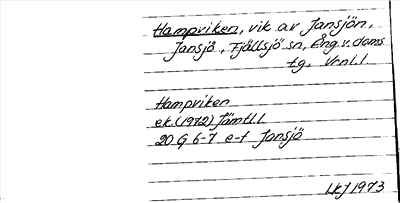 Hampviken, vik av Jansjön,
Jansjö, Fjällsjö sn, Ång. v. doms
tg, Vrnl. l.
Hampviken
ek. (1972) Jämtl. l
20 G 6-7 e-f Jansjö
LKJ 1973